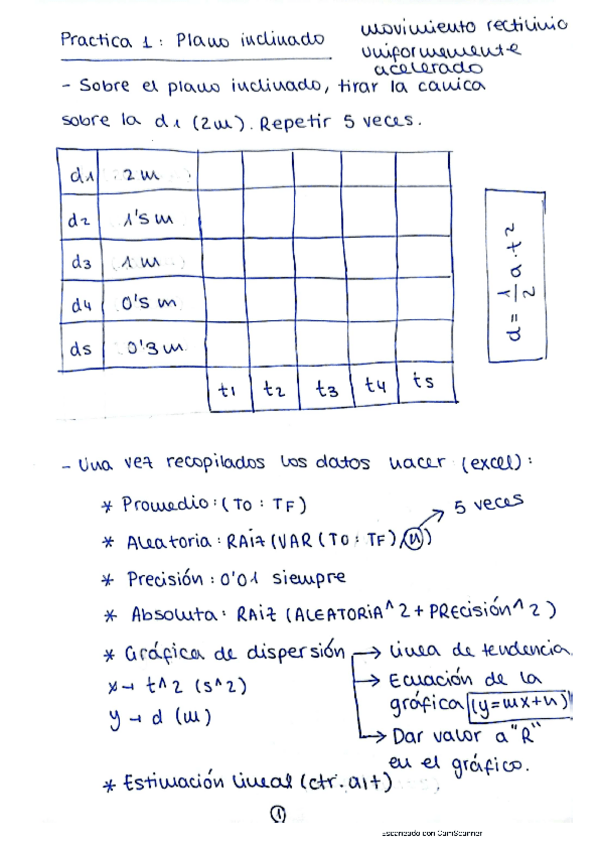 Practica 1: Plano inclinado
movimiento rectilinio
uniformemente
acelerado
- Sobre el plano inclinado, tirar la canica
sobre la d1 (2m). Repetir 5 veces.
d1 2 m
d2 1's m
d3 1 m
d4 0's m
d5 0'3 m
t1 t2 t3 t4 t5
d = 1/2 a · t²
- Una vez recopilados los datos hacer (excel):
* Promedio: (T0 : TF)
* Aleatoria: RAÍZ (VAR (T0 : TF) / n)
5 veces
* Precisión: 0'01 siempre
* Absoluta: RAIZ (ALEATORIA^2 + PRECISIÓN^2)
* Gráfica de dispersión → Linea de tendencia.
x → t^2 (s^2)
y → d (m)
→ Ecuación de la
gráfica (y=mx+n)
→ Dar valor a "R"
en el gráfico.
* Estimación Lineal (ctr. alt)
1
Escaneado con CamScanner